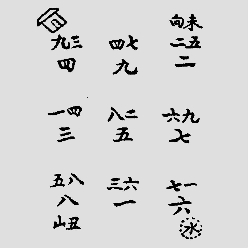 向未
九三 四七 二五
四 九 二
一四 八二 六九
三 五 七
五八 三六 七一
八 一 六
山丑 水